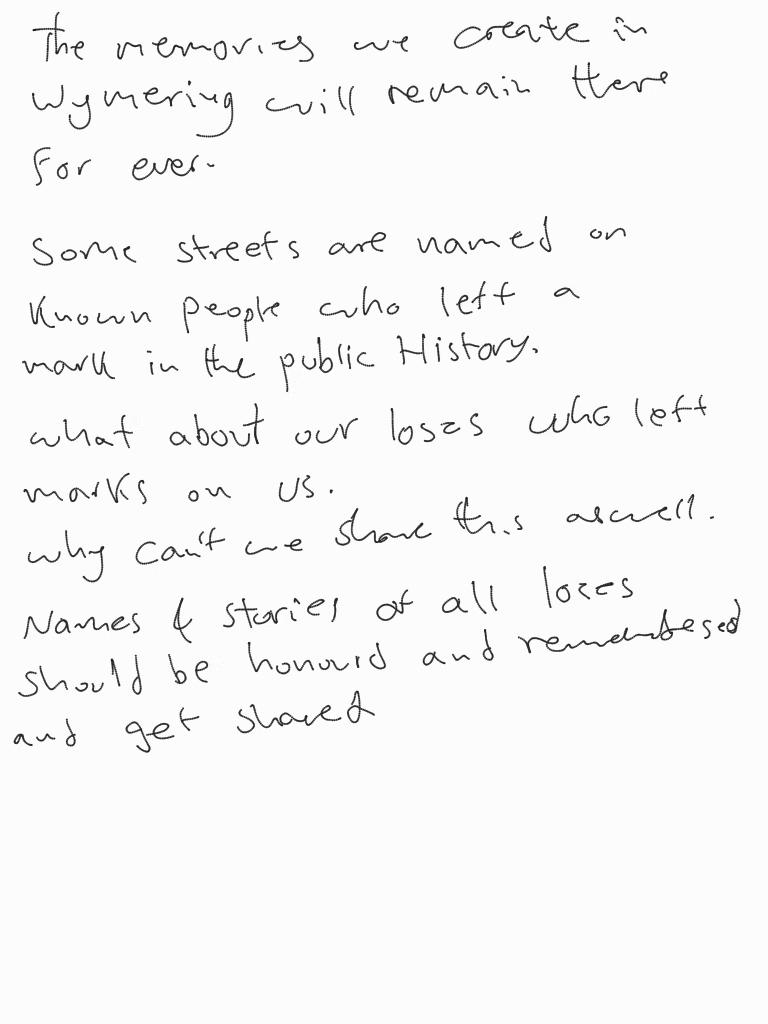 The memories we create in
Wymering will remain there
for ever.
Some streets are named on
known people who left a
mark in the public History.
what about our loses who left
marks on us.
why can't we share this aswell.
Names & stories of all loses
should be honourd and remembered
and get shared